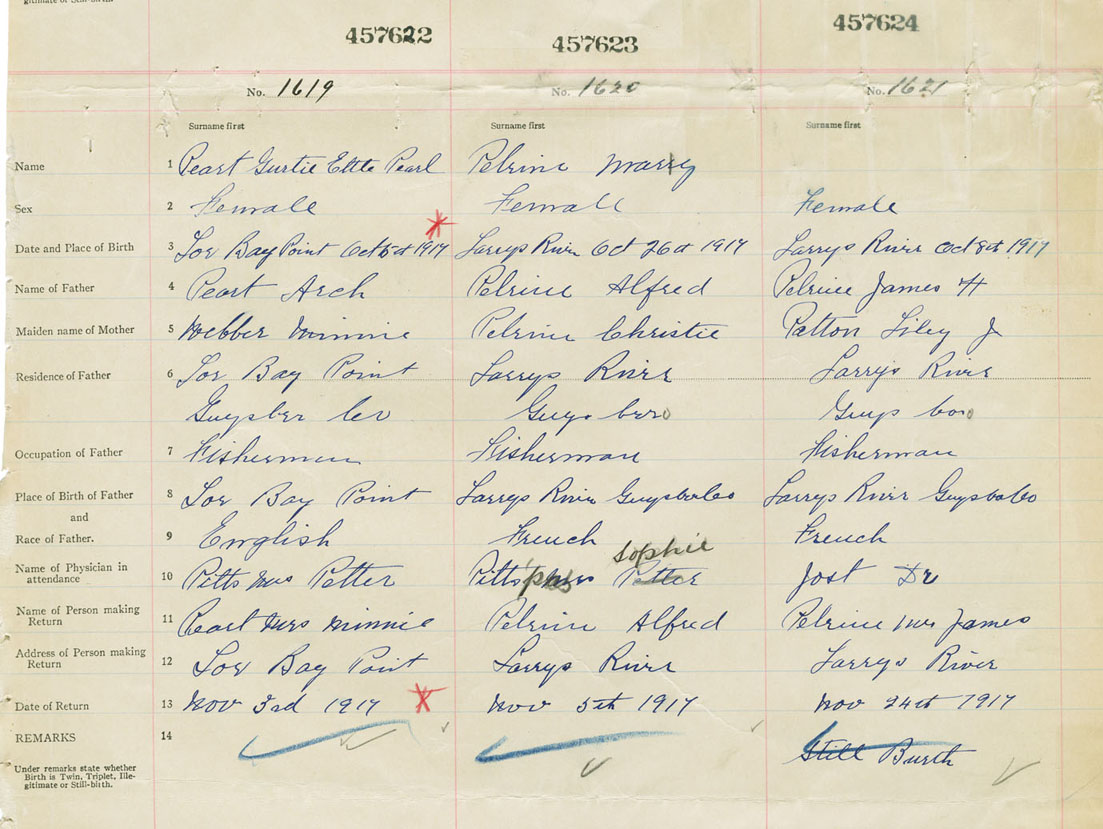 gitimate or Still-birth.
457622 457623 457624
No. 1619 No. 1620 No. 1621
Surname first Surname first Surname first
Name 1 Peart Gurtie Ettle Pearl Pelrine Marry
Sex 2 Female Female Female
Date and Place of Birth 3 Tor Bay Point Oct 1917 Larrys River Oct 26th 1917 Larrys River Oct 8th 1917
Name of Father 4 Peart Arch Pelrine Alfred Pelrine James H
Maiden name of Mother 5 Webber Minnie Pelrine Christie Patton Liley J
Residence of Father 6 Tor Bay Point Larrys River Larrys River
Guysber Co Guys boro Guys boro
Occupation of Father 7 Fisherman Fisherman Fisherman
Place of Birth of Father 8 Tor Bay Point Larrys River Guysboro Larrys River Guysboro
and
Race of Father. 9 English French French
Sophie
Name of Physician in
attendance 10 Pitts Mrs Petter Pitts Mrs Petter Jost Dr
Name of Person making
Return 11 Peart Mrs Minnie Pelrine Alfred Pelrine Mrs James
Address of Person making
Return 12 Tor Bay Point Larrys River Larrys River
Date of Return 13 Nov 3rd 1917 Nov 5th 1917 Nov 24th 1917
REMARKS 14 Still Burth
Under remarks state whether
Birth is Twin, Triplet, Ille-
gitimate or Still-birth.